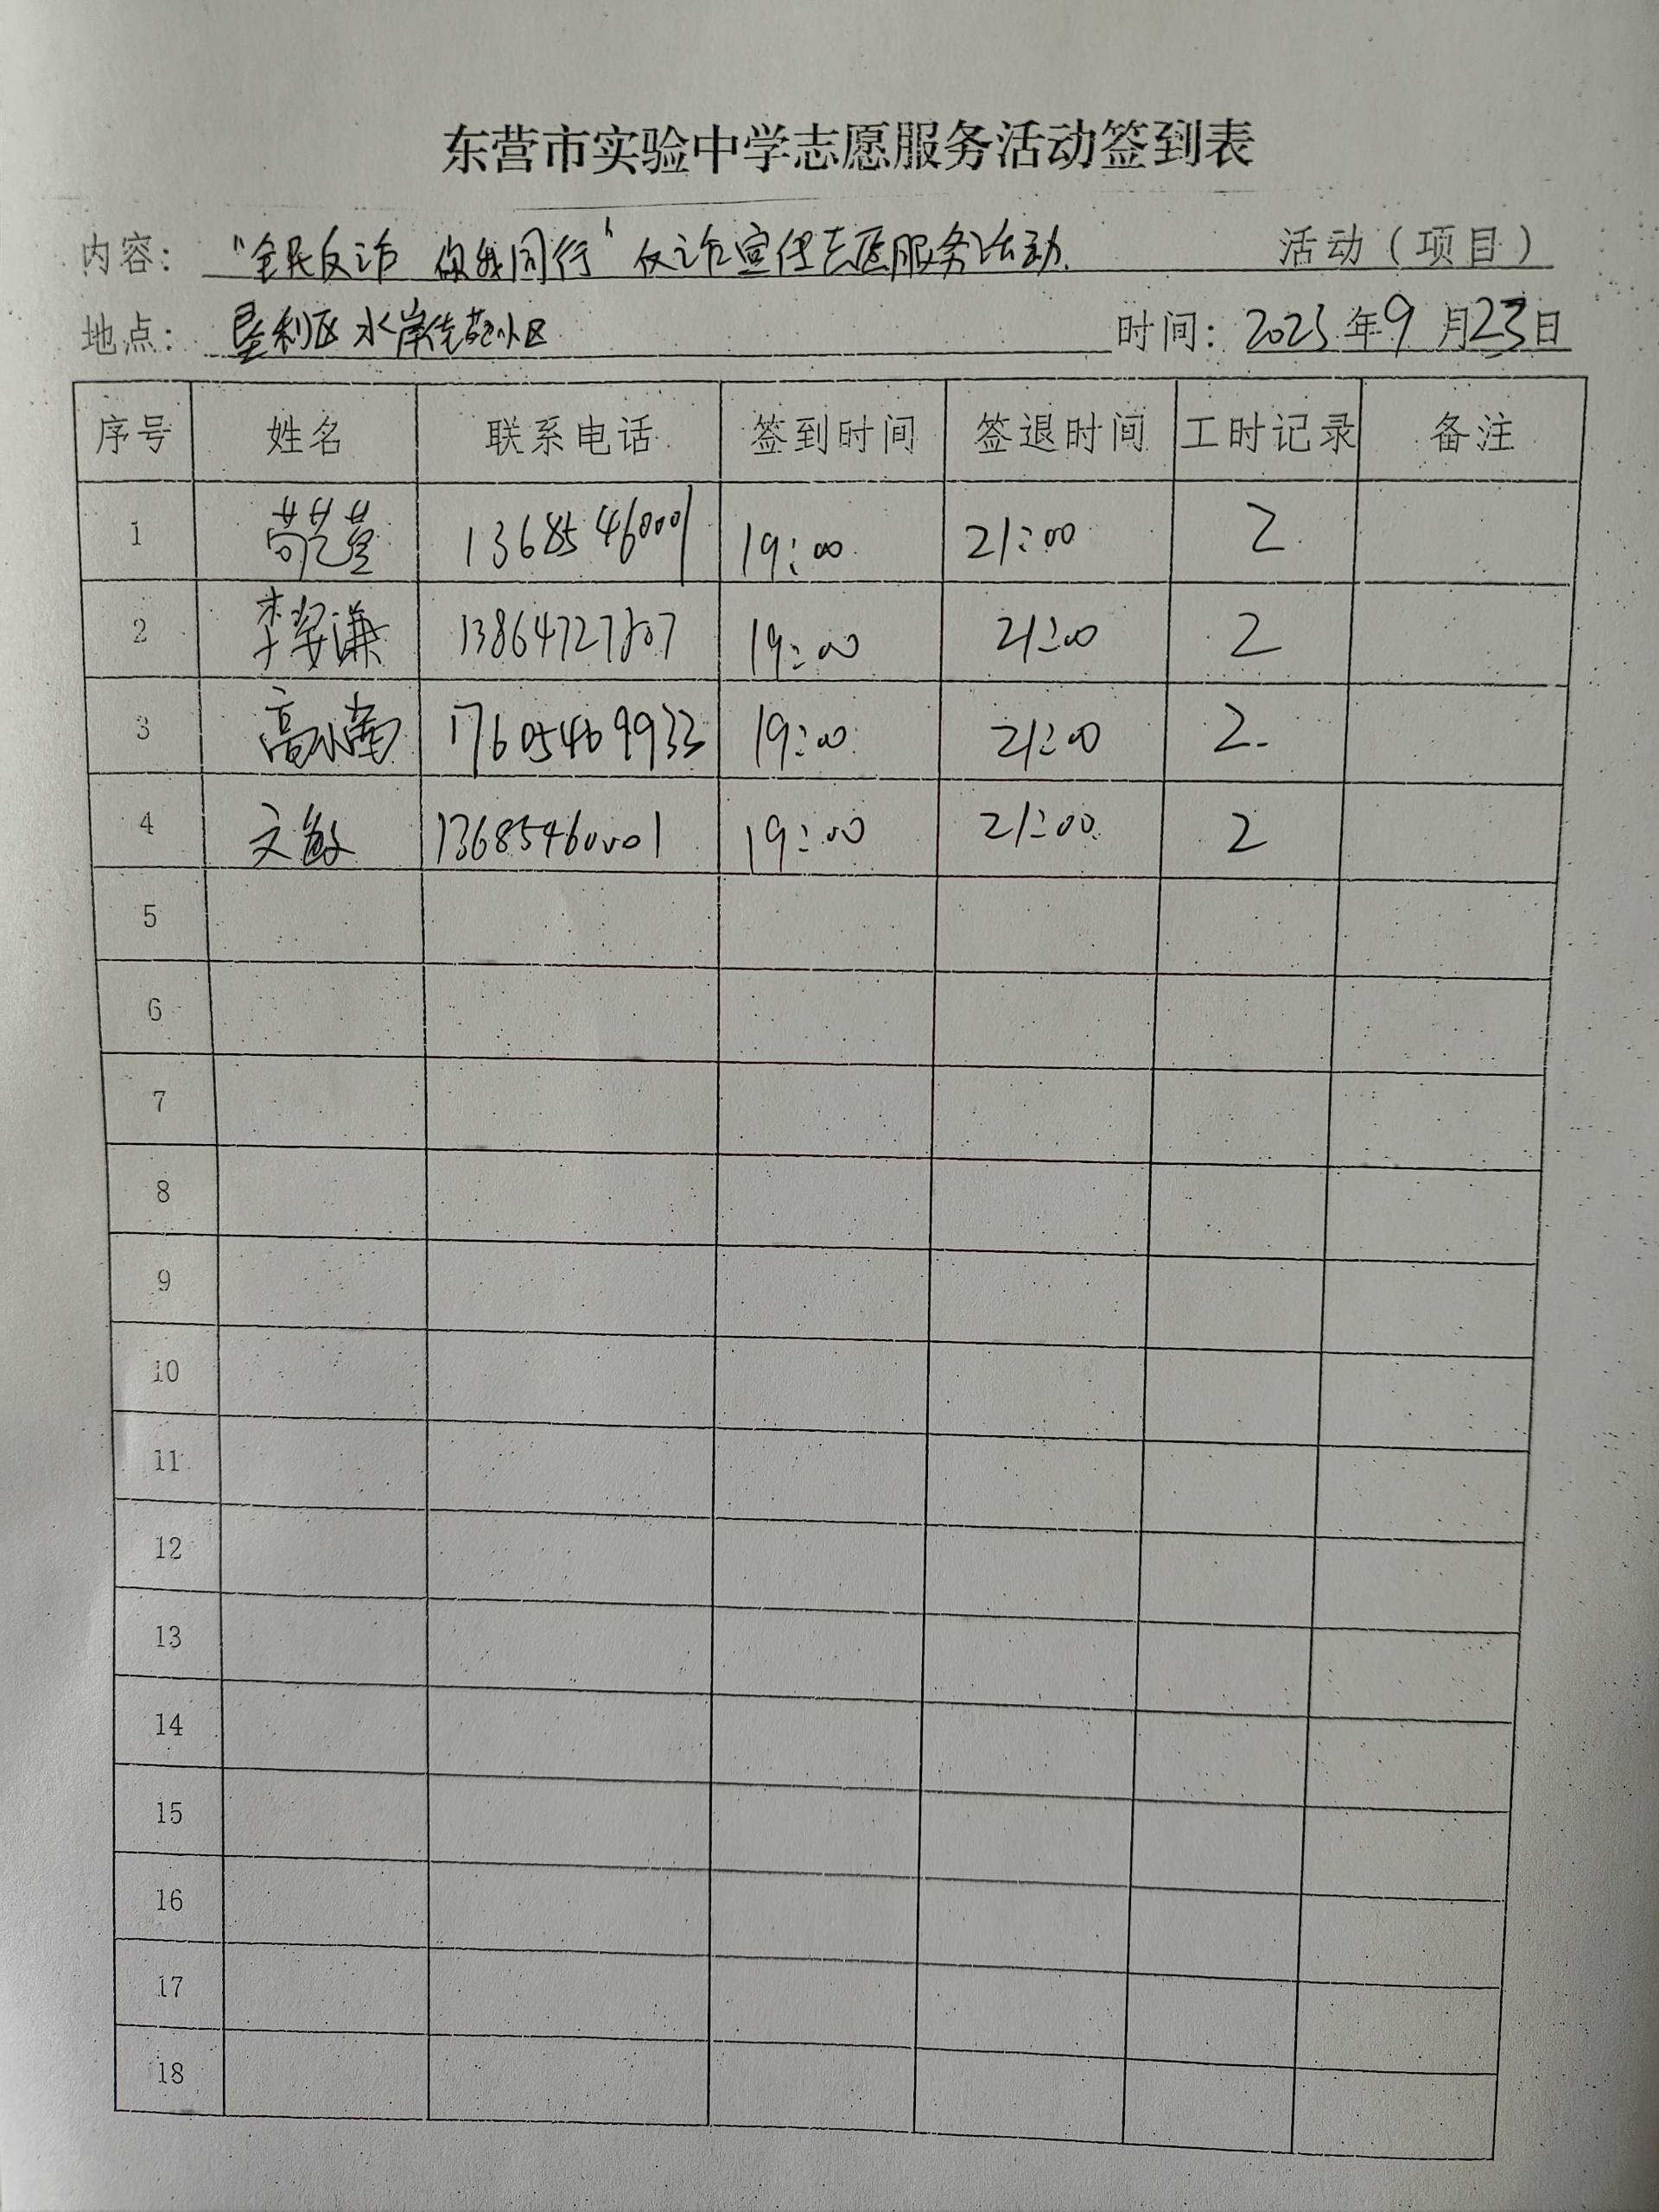 东营市实验中学志愿服务活动签到表
内容： “全民反诈 你我同行”反诈宣传志愿服务活动. 活动（项目）
地点： 垦利区水岸佳苑小区 时间：2023年9月23日
序号 姓名 联系电话 签到时间 签退时间 工时记录 备注
1 13685460001 19:00 21:00 2
2 李晏谦 13864727807 19:00 21:00 2
3 高小茜 17605469933 19:00 21:00 2
4 文敏 13685460001 19:00 21:00 2
5
6
7
8
9
10
11
12
13
14
15
16
17
18